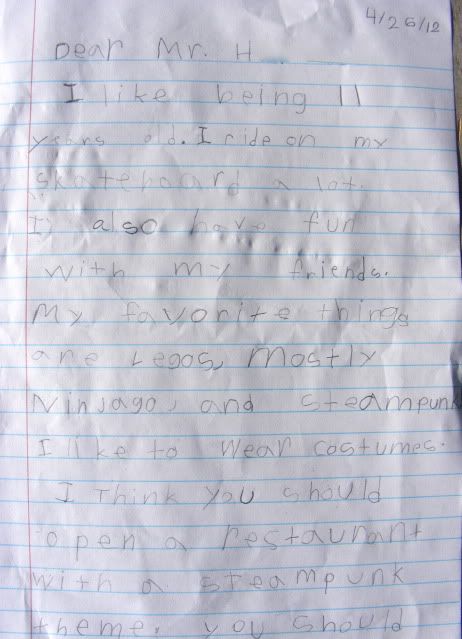 4/26/12
Dear Mr. H
I like being 11
years old. I ride on my
skateboard a lot.
I also have fun
with my friends.
My favorite things
are Legos, mostly
Ninjago, and steampunk
I like to wear costumes.
I think you should
open a restaurant
with a steampunk
theme. you should